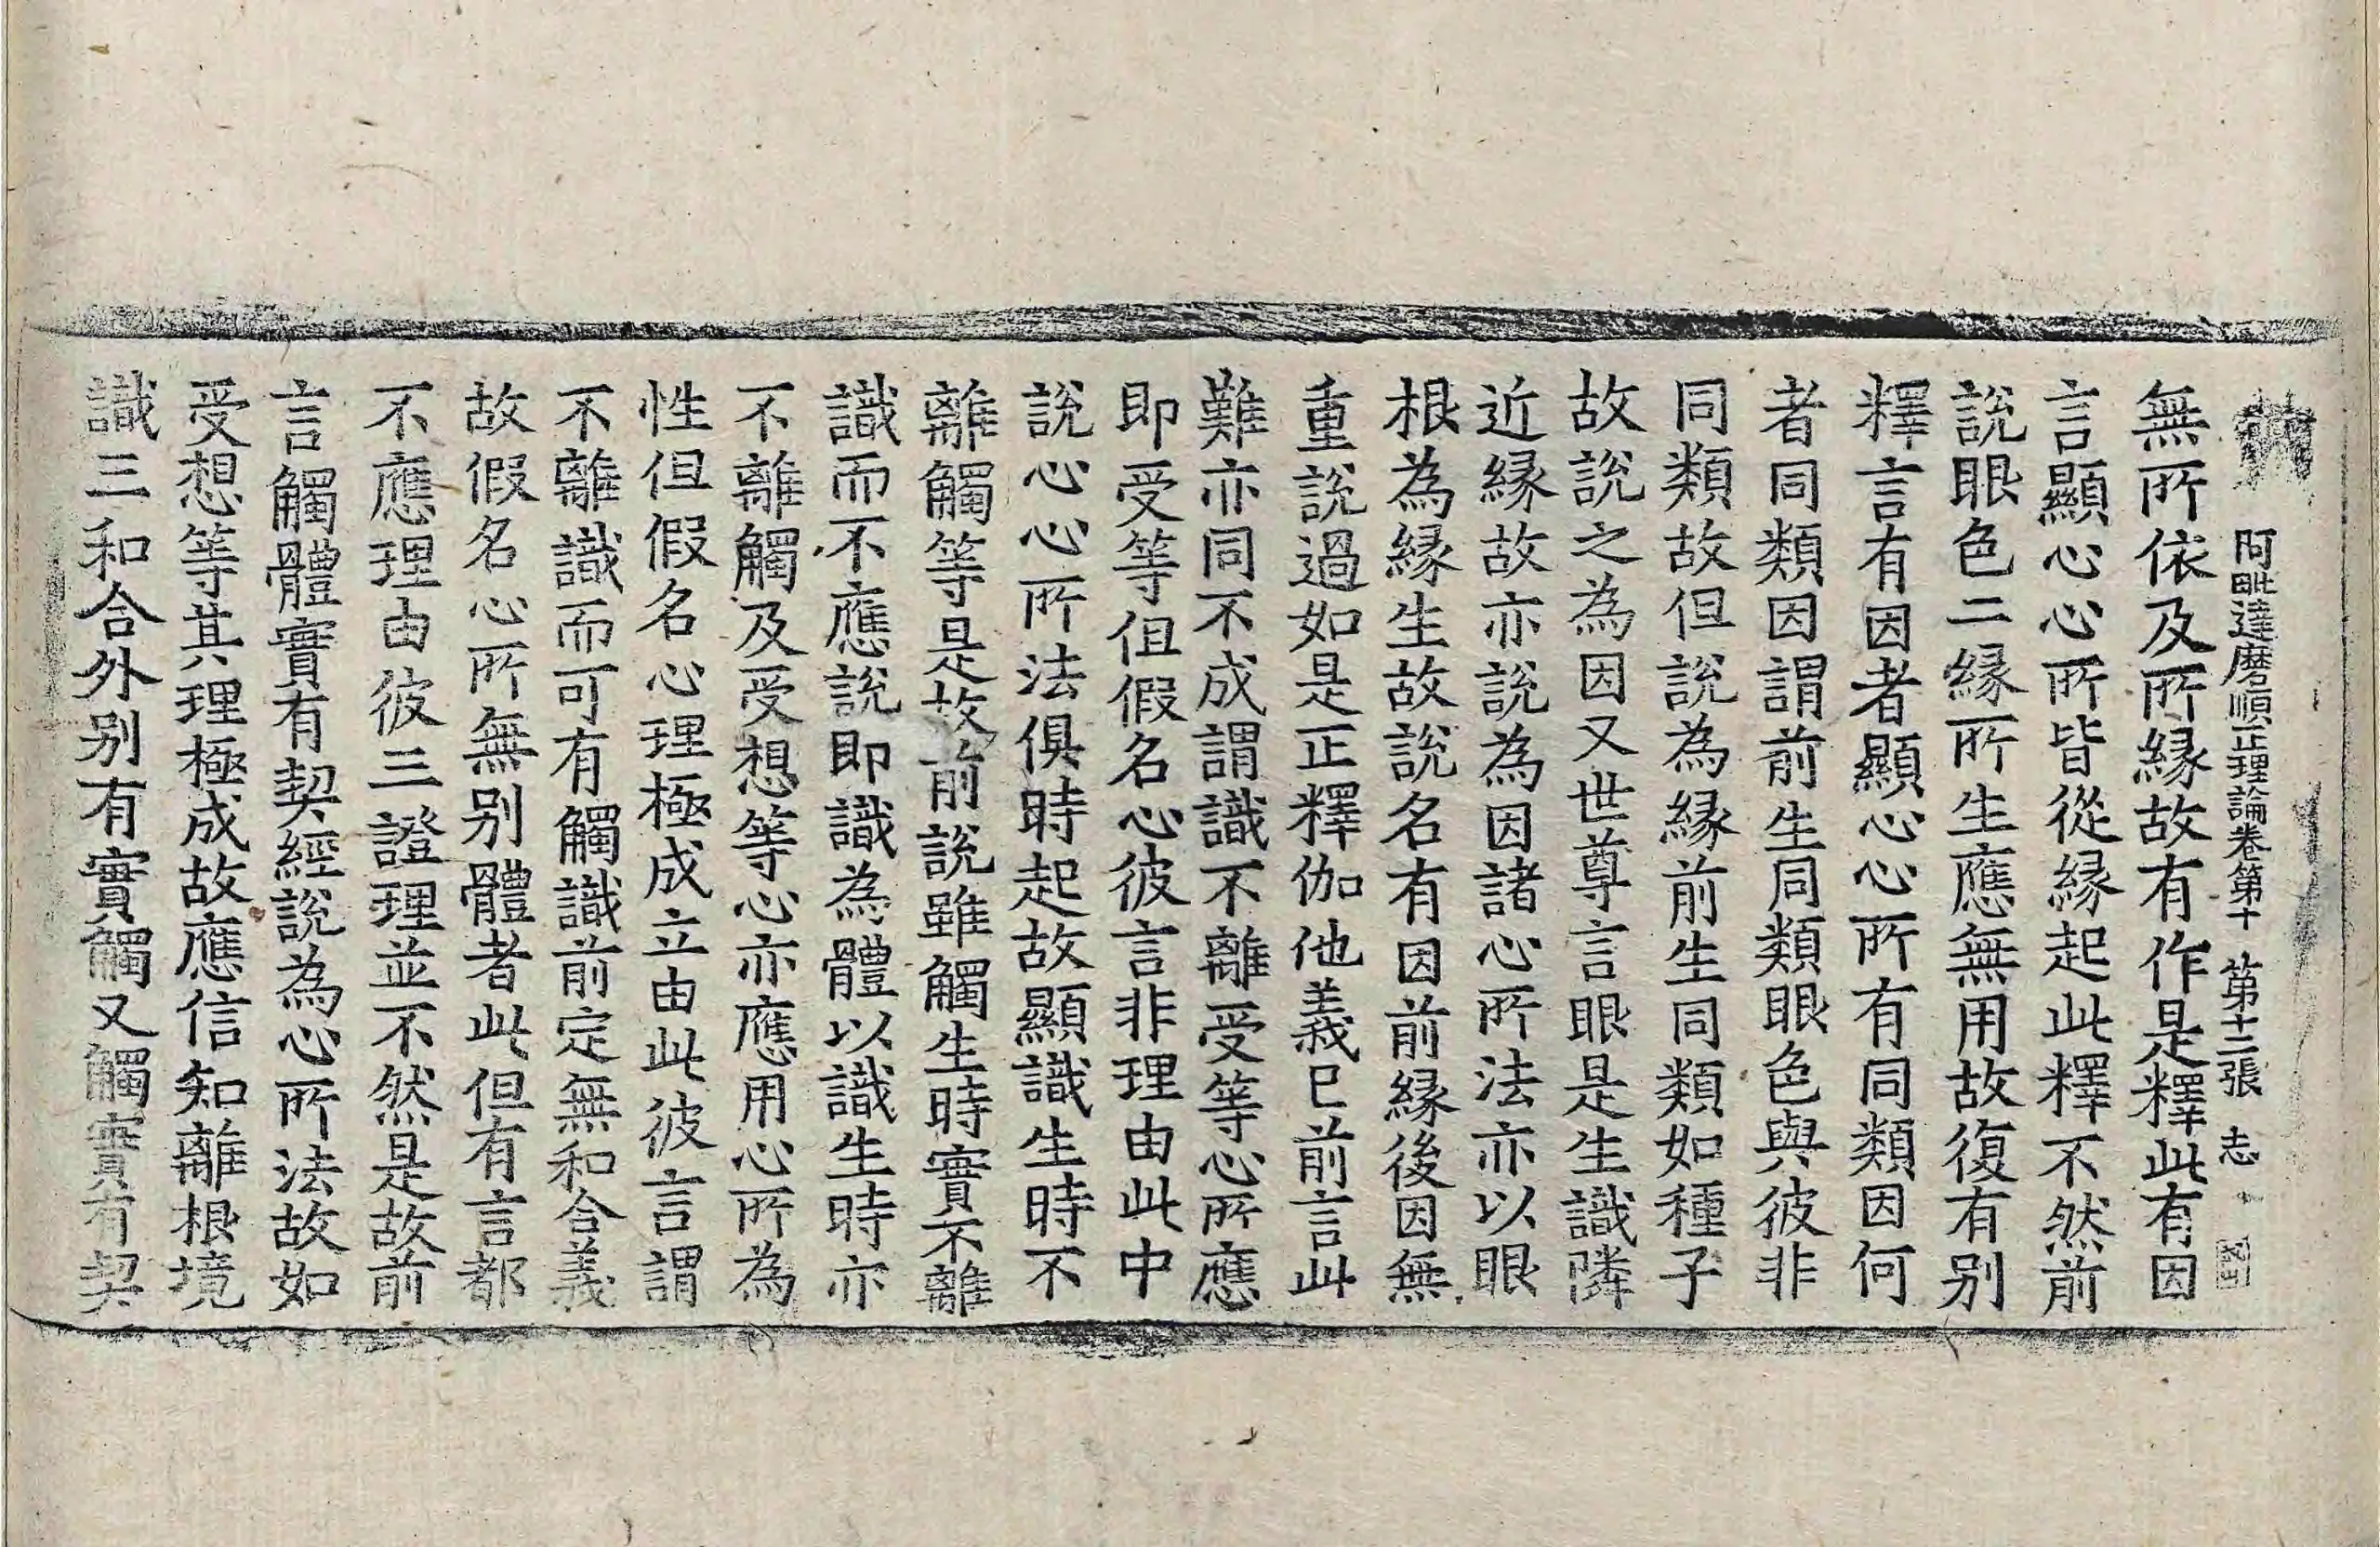 阿毗達磨順正理論卷第十　第十二張　志
無所依及所緣故有作是釋此有因
言顯心心所皆從緣起此釋不然前
說眼色二緣所生應無用故復有别
釋言有因者顯心心所有同類因何
者同類因謂前生同類眼色與彼非
同類故但說為緣前生同類如種子
故說之為因又世尊言眼是生識隣
近緣故亦說為因諸心所法亦以眼
根為緣生故說名有因前緣後因無
重說過如是正釋伽他義已前言此
難亦同不成謂識不離受等心所應
即受等但假名心彼言非理由此中
說心心所法俱時起故顯識生時不
離觸等是故前說雖觸生時實不離
識而不應說即識為體以識生時亦
不離觸及受想等心亦應用心所為
性但假名心理極成立由此彼言謂
不離識而可有觸識前定無和合義
故假名心所無别體者此但有言都
不應理由彼三證理並不然是故前
言觸體實有契經說為心所法故如
受想等其理極成故應信知離根境
識三和合外别有實觸又觸實有契